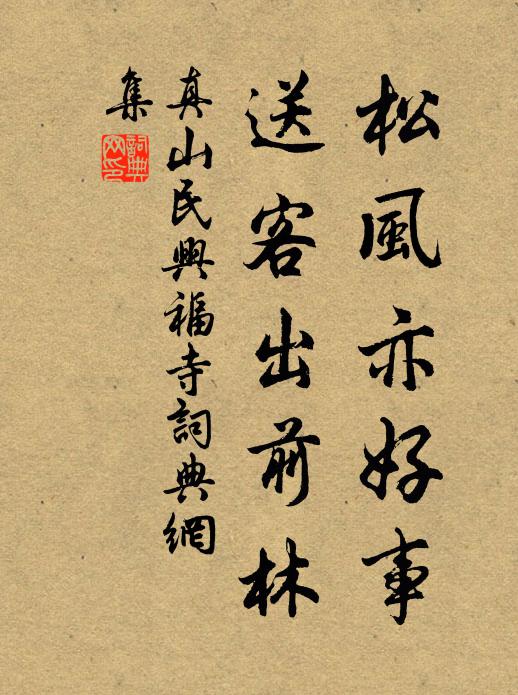 松風亦好事
送客出前林
真山民興福寺詞典網
集
詞典网印